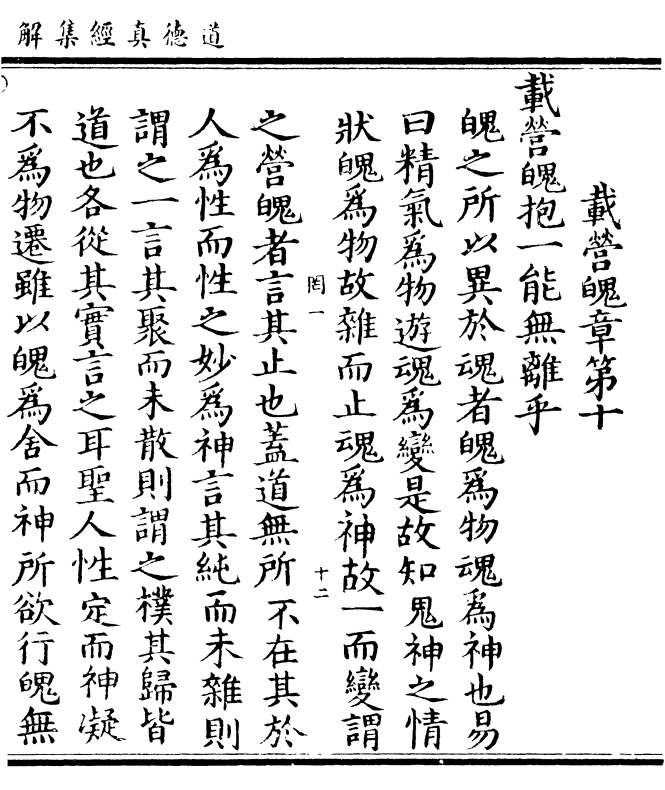 道德真經集解
載營魄章第十
載營魄抱一能無離乎
魄之所以異於魂者魄爲物魂爲神也易
曰精氣爲物遊魂爲變是故知鬼神之情
狀魄爲物故雜而止魂爲神故一而變謂
罔一
十二
之營魄者言其止也蓋道無所不在其於
人爲性而性之妙爲神言其純而未雜則
謂之一言其聚而未散則謂之樸其歸皆
道也各從其實言之耳聖人性定而神凝
不爲物遷雖以魄爲舍而神所欲行魄無